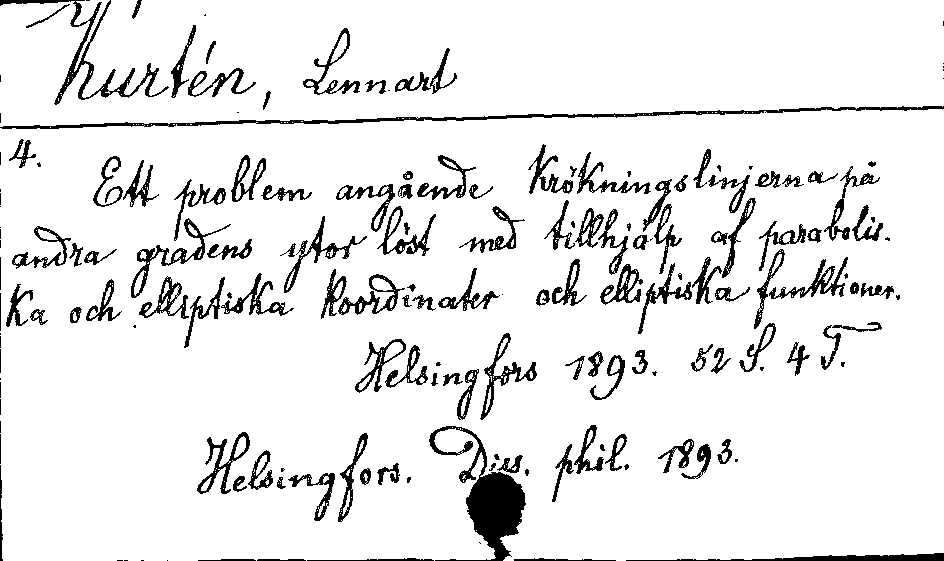 Kurtén, Lennart
4.
Ett problem angående krökningslinjerna på
andra gradens ytor löst med tillhjälp af parabolis-
ka och elliptiska koordinater och elliptiska funktioner.
Helsingfors 1893. 52 S. 4 T.
Helsingfors. Diss. phil. 1893.